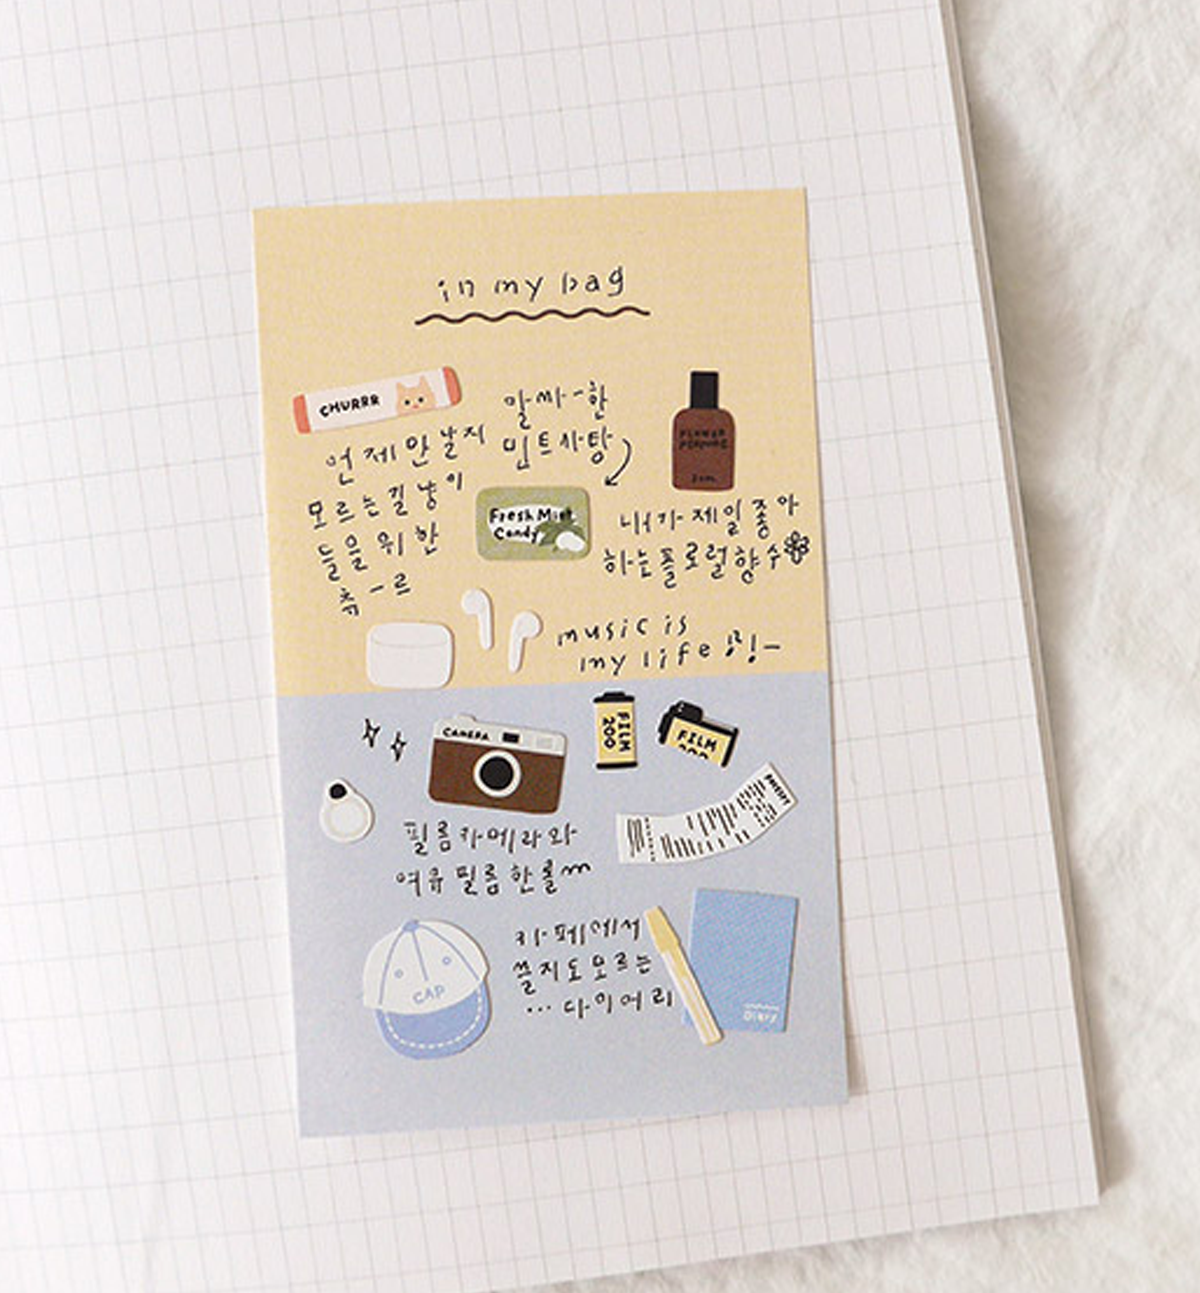 in my bag
CHURRR
알싸-한
민트사탕
FLOWER
PERFUME
언제 만날지
모르는 길냥이
들을 위한
츄-르
Fresh Mint
Candy
내가 제일 좋아
하는 플로럴 향수
music is
my life
CAMERA
FILM
200
FILM
200
RECEIPT
필름 카메라와
여유 필름 한 롤
카페에서
쓸지도 모르는
... 다이어리
CAP
Diary